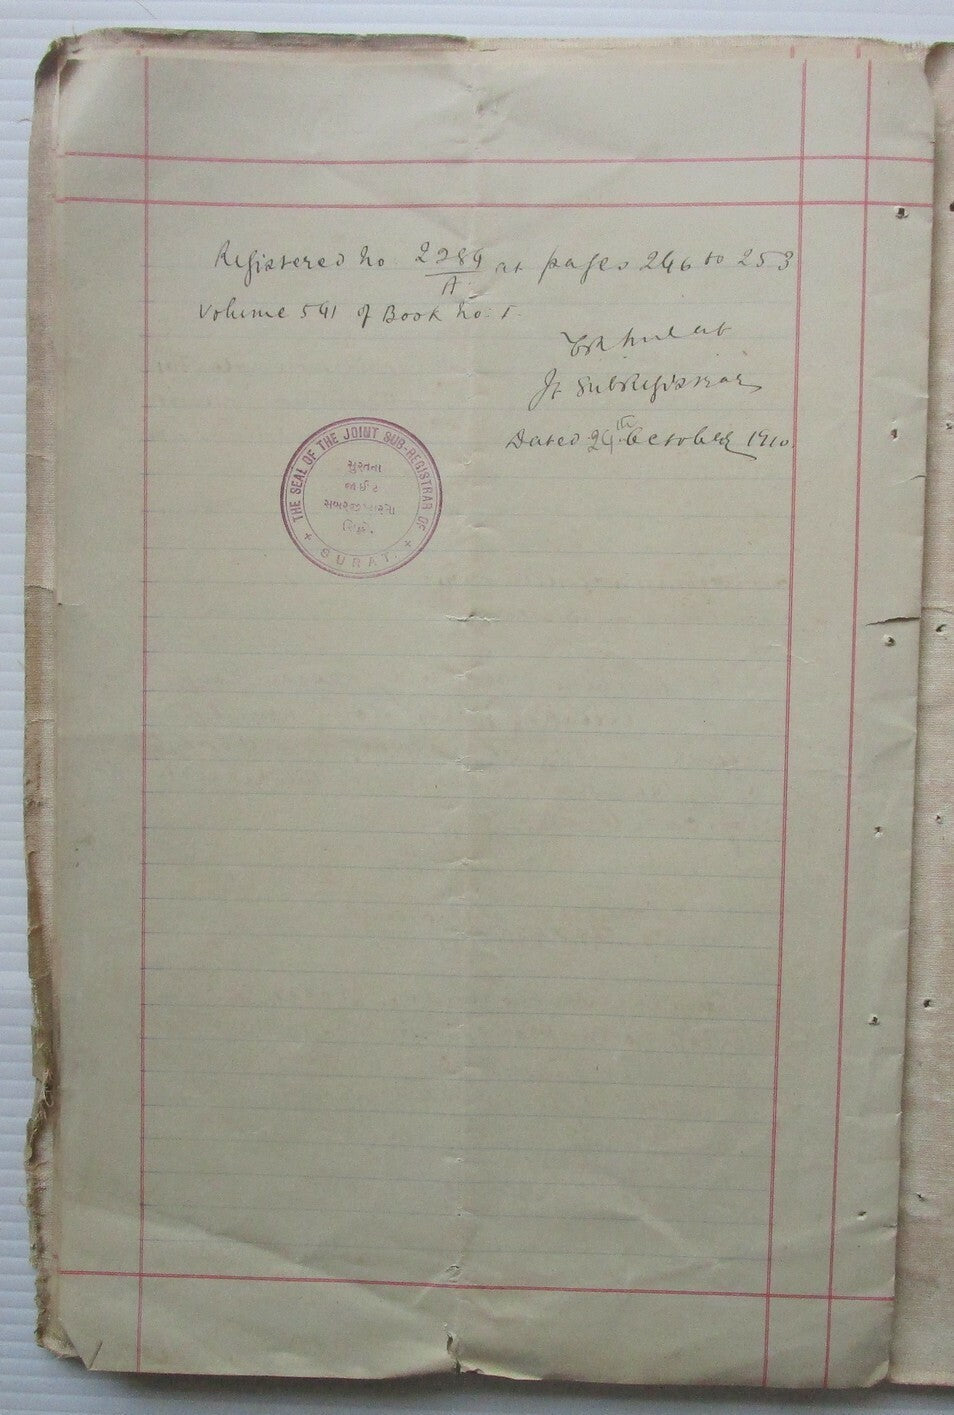 Registered No. 2284/A at pages 246 to 253
Volume 541 of Book No: 1.
Jt SubRegistrar
Dated 24th October 1910.
THE SEAL OF THE JOINT SUB-REGISTRAR OF
સુરતના
જાઈંટ
સબરજીસ્ટ્રારનો
સિક્કો.
SURAT.